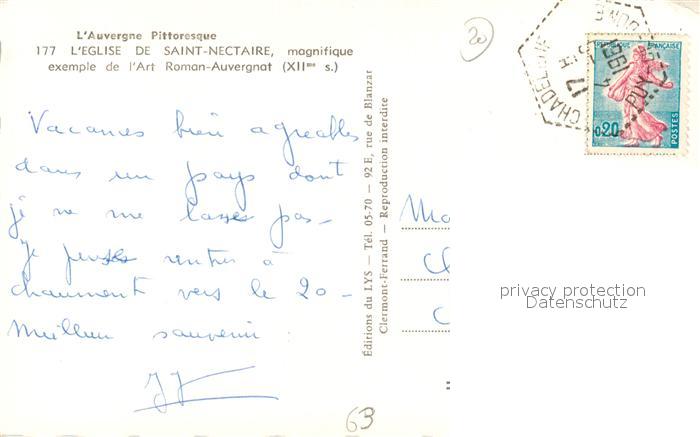 L'Auvergne Pittoresque
177 L'EGLISE DE SAINT-NECTAIRE, magnifique
exemple de l'Art Roman-Auvergnat (XIIme s.)
Vacances bien agréables
dans un pays dont
je ne me lasse pas-
je pense rentrer à
chaumont vers le 20-
Meilleur souvenir.
Éditions du LYS — Tél. 05-70 — 92 E, rue de Blanzat
Clermont-Ferrand — Reproduction interdite
20
63
CHADELEUF
PUY
17
1961
REPUBLIQUE FRANÇAISE
0,20
POSTES
privacy protection
Datenschutz